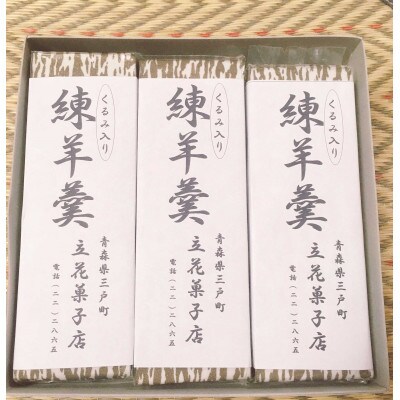 くるみ入り
練羊羹
青森県三戸町
立花菓子店
電話(二二)二八六五
くるみ入り
練羊羹
青森県三戸町
立花菓子店
電話(二二)二八六五
くるみ入り
練羊羹
青森県三戸町
立花菓子店
電話(二二)二八六五